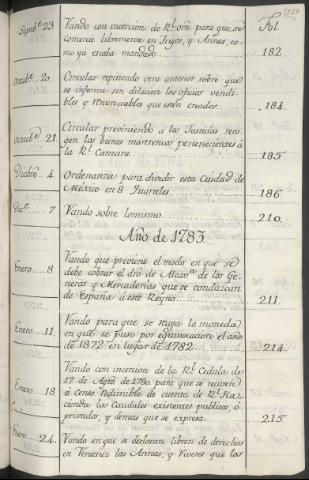 Fol
Septe 23 Vando con incercion de Rl. orn. para que se
comercie libremente en Trigos, y Arinas, co-
mo ya estaba mandado 182.
Octue 20 Circular repitiendo otra anterior sobre que
se informe sin dilacion los oficios vendi-
bles y renunciables que esten creados 184.
Octube 21 Circular previniendo a las Justicias reco-
gan los bienes mostrencos pertenecientes á
la Rl. Camara 185
Dicbre 4 Ordenanza para dividir esta Ciudad de
Mexico en 8 Quarteles 186
Dice 7 Vando sobre lo mismo 210
Año de 1783
Enero 8 Vando que previene el modo en que se
debe cobrar el dro de Alcavas. de los Ge-
neros y Mercaderias que se conduzcan
de España á este Reyno 211.
Enero 11 Vando para que se recoja la moneda
en que se puso por equivocacion el año
de 1872 en lugar de 1782 214
Enero 18 Vando con incercion de la Rl. Cedula de
17 de Agto de 1780. para que se reciven
á Censo redimible de cuenta de Rl. Ha-
cienda los Caudales existentes publicos, ó
privados, y demas que se expresa 215
Enero 24 Vando en que se declaran libres de derechos
en Veracruz las Arinas, y Viveres que los